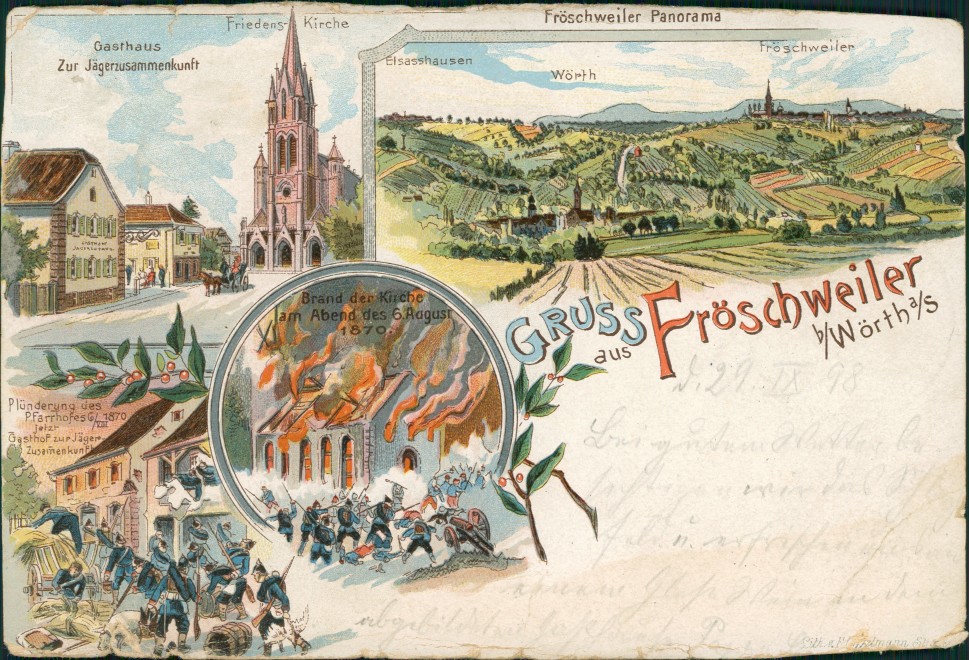 Gasthaus
Zur Jägerzusammenkunft
Friedens-Kirche
Fröschweiler Panorama
Elsasshausen
Wörth
Fröschweiler
Brand der Kirche
am Abend des 6. August
1870.
GRUSS
aus
Fröschweiler
b/Wörth a/S
Plünderung des
Pfarrhofes 6/VIII 1870
jetzt
Gasthof zur Jäger
Zusamenkunft
d. 29. IX 98
Bei gutem Wetter be
wir das
u. erfrischen uns
einem Glase Wein in dem
abgebildeten